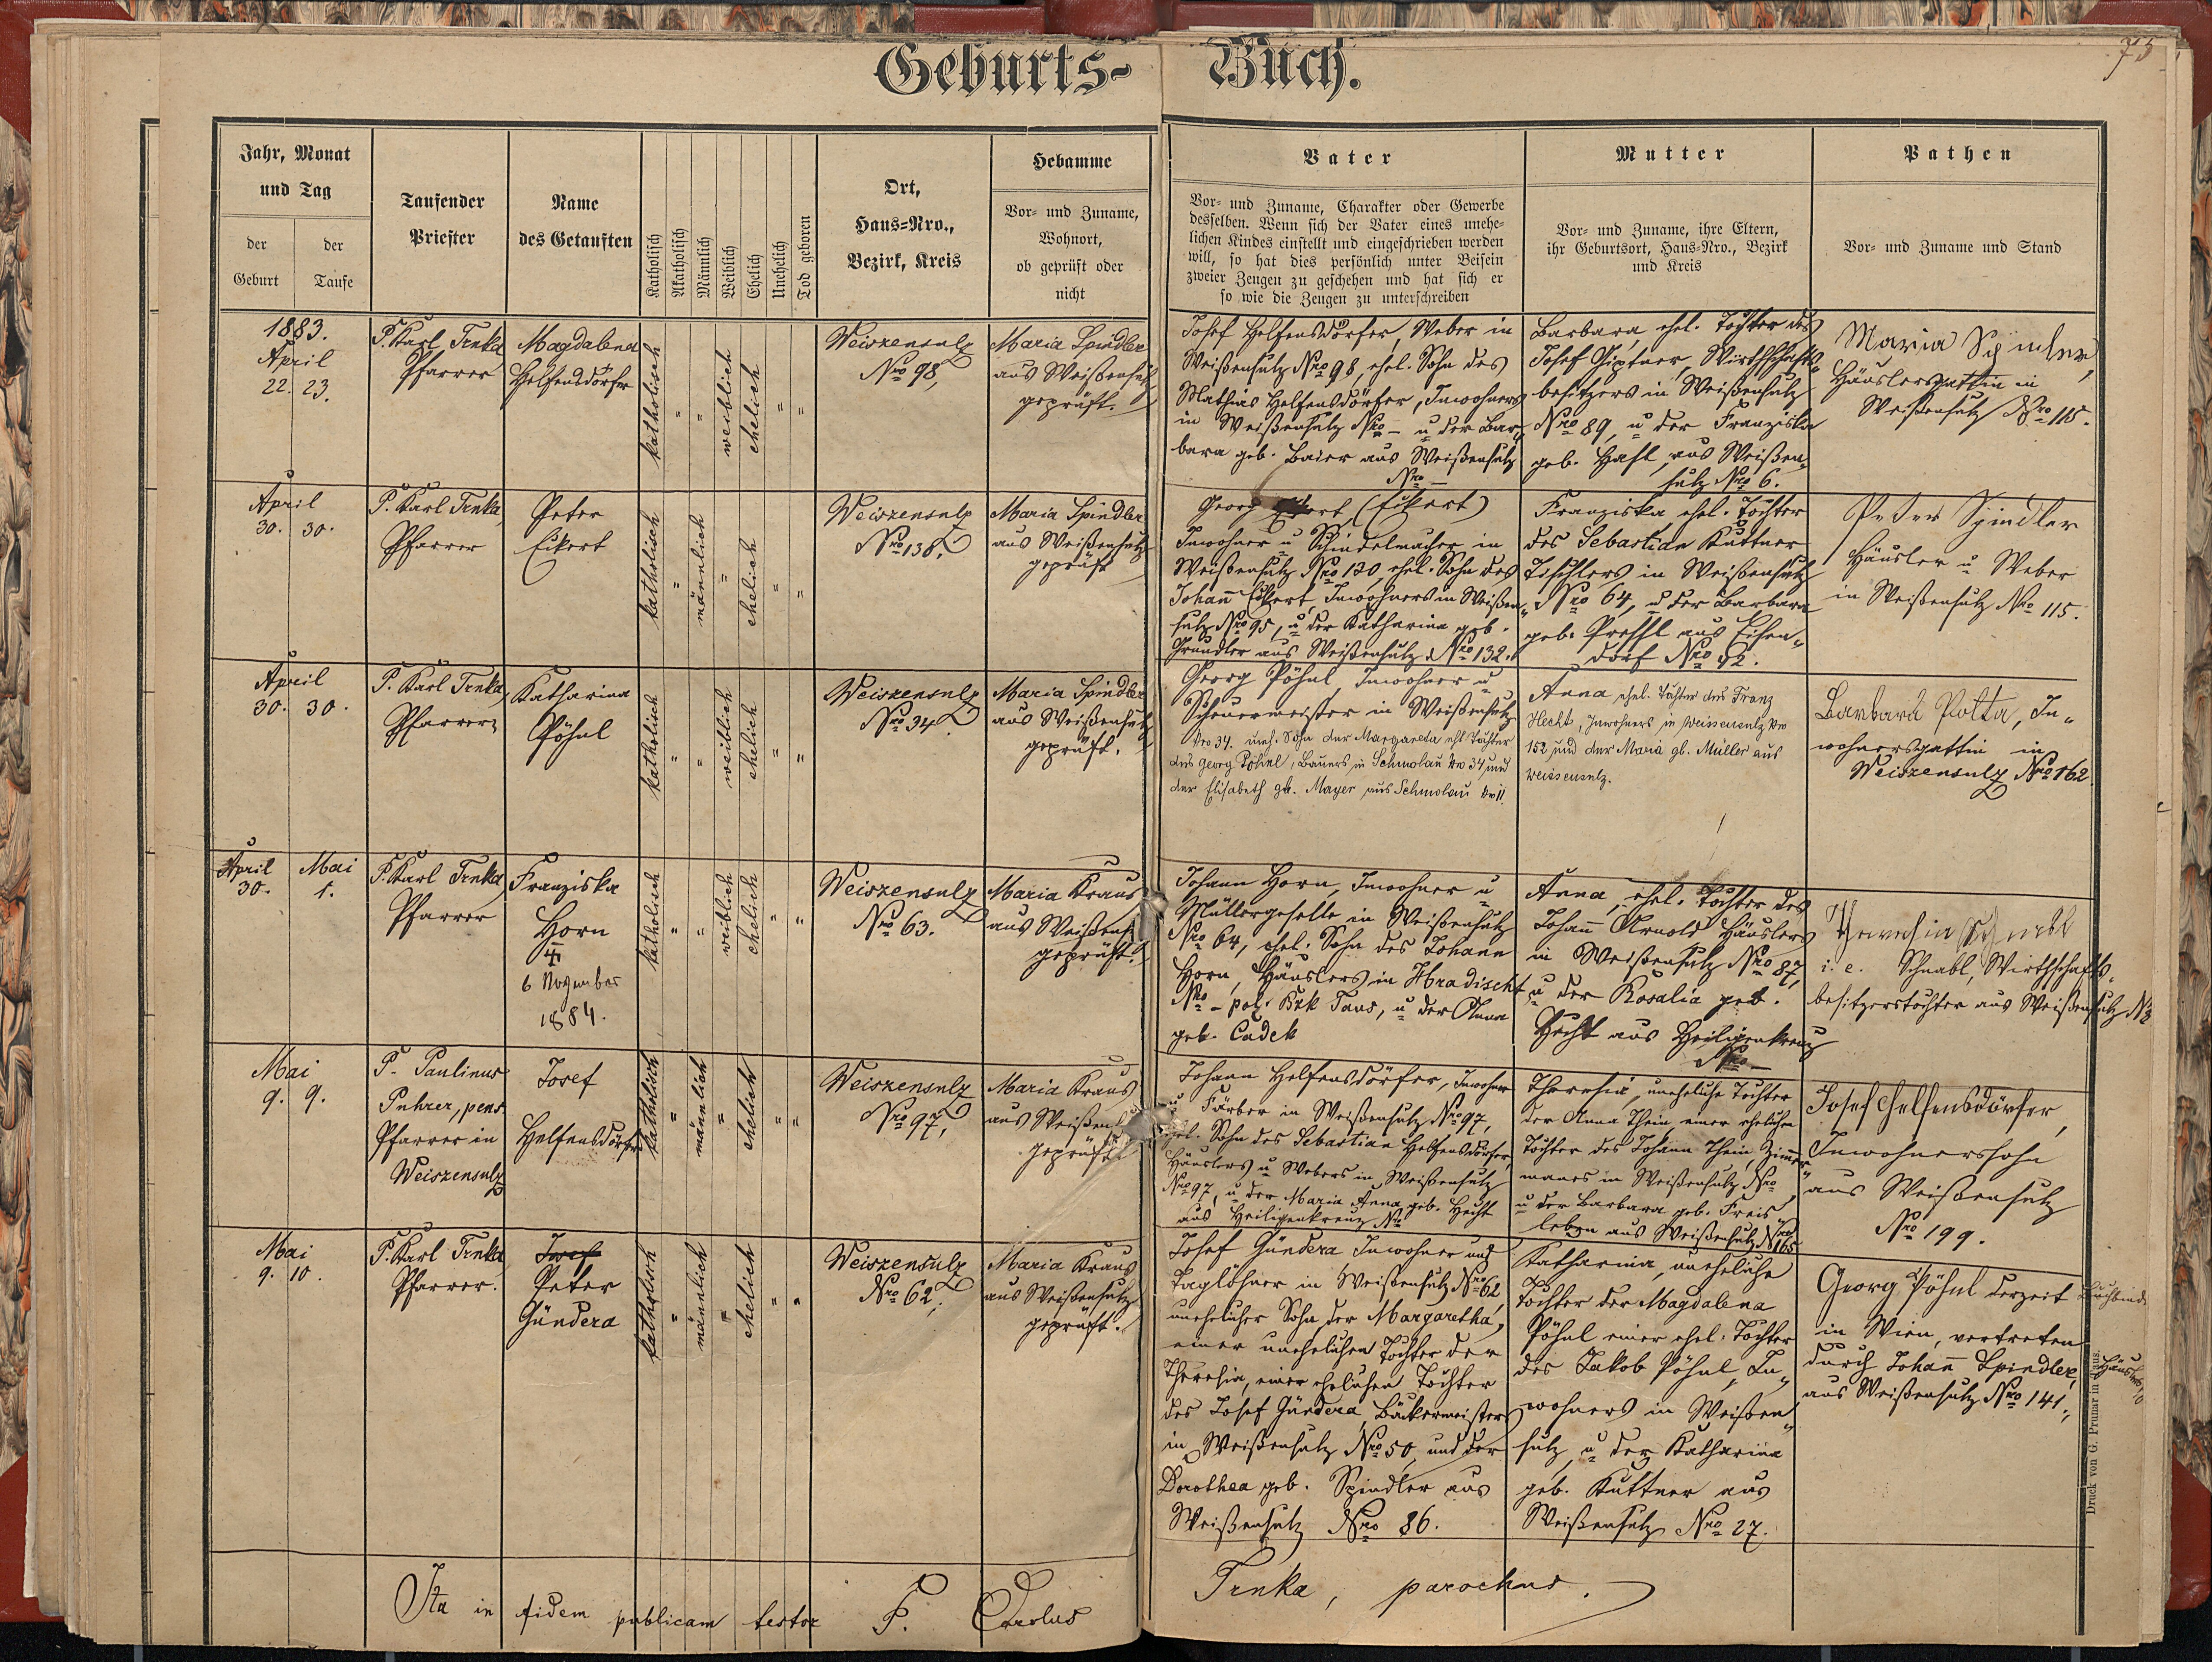 Geburts-
Buch.
75
Jahr, Monat
und Tag
der
Geburt
der
Taufe
Taufender
Priester
Name
des Getauften
Katholisch
Akatholisch
Männlich
Weiblich
Ehelich
Unehelich
Tod geboren
Ort,
Haus-Nro.,
Bezirk, Kreis
Hebamme
Vor- und Zuname,
Wohnort,
ob geprüft oder
nicht
Vater
Vor- und Zuname, Charakter oder Gewerbe
desselben. Wenn sich der Vater eines unehe-
lichen Kindes einstellt und eingeschrieben werden
will, so hat dies persönlich unter Beisein
zweier Zeugen zu geschehen und hat sich er
so wie die Zeugen zu unterschreiben
Mutter
Vor- und Zuname, ihre Eltern,
ihr Geburtsort, Haus-Nro., Bezirk
und Kreis
Pathen
Vor- und Zuname und Stand
1883.
April
22. 23.
P. Karl Trnka
Pfarrer
Magdalena
Helfensdörfer
katholisch
"
"
weiblich
ehelich
"
"
Weiszensulz
Nro 98,
Maria Spindler
aus Weißensulz
geprüft.
Josef Helfensdörfer, Weber in
Weißensulz Nro 98, ehel. Sohn des
Mathias Helfensdörfer, Inwohners
in Weißensulz Nro – u der Bar-
bara geb. Baier aus Weißensulz
Nro –
Barbara, ehel. Tochter des
Josef Piptner, Wirthschafts-
besitzers in Weißensulz
Nro 89, u der Franziska
geb. Hast, aus Weißen-
sulz Nro 6.
Maria Spindler,
Häuslersgattin in
Weißensulz Nro 115.
April
30. 30.
P. Karl Trnka,
Pfarrer
Peter
Eikert
katholisch
"
männlich
"
ehelich
"
"
Weiszensulz
Nro 138.
Maria Spindler
aus Weißensulz
geprüft
Georg (Eikert)
Inwohner u Schindelmacher in
Weißensulz Nro 130, ehel. Sohn des
Johann Eikert, Inwohners in Weißen-
sulz Nro 95, u der Katharina geb.
Gründler aus Weißensulz Nro 132.
Franziska, ehel. Tochter
des Sebastian Kuttner
Tischlers in Weißensulz
Nro 64, u der Barbara
geb. Pressl aus Eisen-
dorf Nro 42.
Peter Spindler
Häusler u Weber
in Weißensulz Nro 115.
April
30. 30.
P. Karl Trnka,
Pfarrer
Katharina
Pöhnl
katholisch
"
"
weiblich
ehelich
"
"
Weiszensulz
Nro 34.
Maria Spindler
aus Weißensulz
geprüft.
Georg Pöhnl Inwohner u
Scheuermeister in Weißensulz
Nro 34. uneh. Sohn der Margareta ehl. Tochter
des Georg Pöhnl, Bauers in Schmolau Nro 34 und
der Elisabeth gb. Mayer aus Schmolau Nro 11.
Anna ehel. Tochter des Franz
Hecht, Inwohners in Weissensulz Nro
152 und der Maria gb. Müller aus
Weissensulz.
Barbara Polta, In-
wohnersgattin in
Weiszensulz Nro 162
April
30.
Mai
1.
P. Karl Trnka,
Pfarrer
Franziska
Horn
6 November
1884.
katholisch
"
"
weiblich
ehelich
"
"
Weiszensulz
Nro 63.
Maria Kraus
aus Weißens
geprüft.
Johann Horn, Inwohner u
Müllergeselle in Weißensulz
Nro 64, ehel. Sohn des Johann
Horn, Häuslers in Hradischt
Nro – pol. Bzk Taus, u der Anna
geb. Cadek
Anna, ehel. Tochter des
Johann Arnold Häuslers
in Weißensulz Nro 87,
u der Rosalia geb.
Hecht aus Heiligenkreuz
Nro –
i. e. Schnabl, Wirthschafts-
besitzerstochter aus Weißensulz N
Mai
9. 9.
P. Paulinus
Puhrer, pens.
Pfarrer in
Weiszensulz
Josef
Helfensdörfer
katholisch
"
männlich
"
ehelich
"
"
Weiszensulz
Nro 97,
Maria Kraus
aus Weißens
geprüft
Johann Helfensdörfer, Inwohner
u Färber in Weißensulz Nro 97,
ehel. Sohn des Sebastian Helfensdörfer,
Häuslers u Webers in Weißensulz
Nro 97, u der Maria Anna geb. Hecht
aus Heiligenkreuz Nro
Theresia, uneheliche Tochter
der Anna Thein einer ehelichen
Tochter des Johann Thein, Zimmer-
manes in Weißensulz Nro
u der Barbara geb. Freis-
leben aus Weißensulz Nro 165
Josef Helfensdörfer,
Inwohnerssohn
aus Weißensulz
Nro 199.
Mai
9. 10.
P. Karl Trnka
Pfarrer.
Josef
Peter
Gündera
katholisch
"
männlich
"
ehelich
"
"
Weiszensulz
Nro 62.
Maria Kraus
aus Weißensulz
geprüft.
Josef Gündera Inwohner und
Taglöhner in Weißensulz Nro 62,
unehelicher Sohn der Margaretha,
einer unehelichen Tochter der
Theresia, einer ehelichen Tochter
des Josef Gündera, Bäckermeisters
in Weißensulz Nro 50, und der
Dorothea geb. Spindler aus
Weißensulz Nro 86.
Katharina, uneheliche
Tochter der Magdalena
Pöhnl einer ehel. Tochter
des Jakob Pöhnl, In-
wohners in Weißen-
sulz, u der Katharina
geb. Kuttner aus
Weißensulz Nro 27.
Georg Pöhnl derzeit Buchbinder
in Wien, vertreten
durch Johann Spindler, Häusler
aus Weißensulz Nro 141.
Druck von G. Prunar in Taus.
Ita in fidem publicam testor P. Carolus
Trnka, parochus.